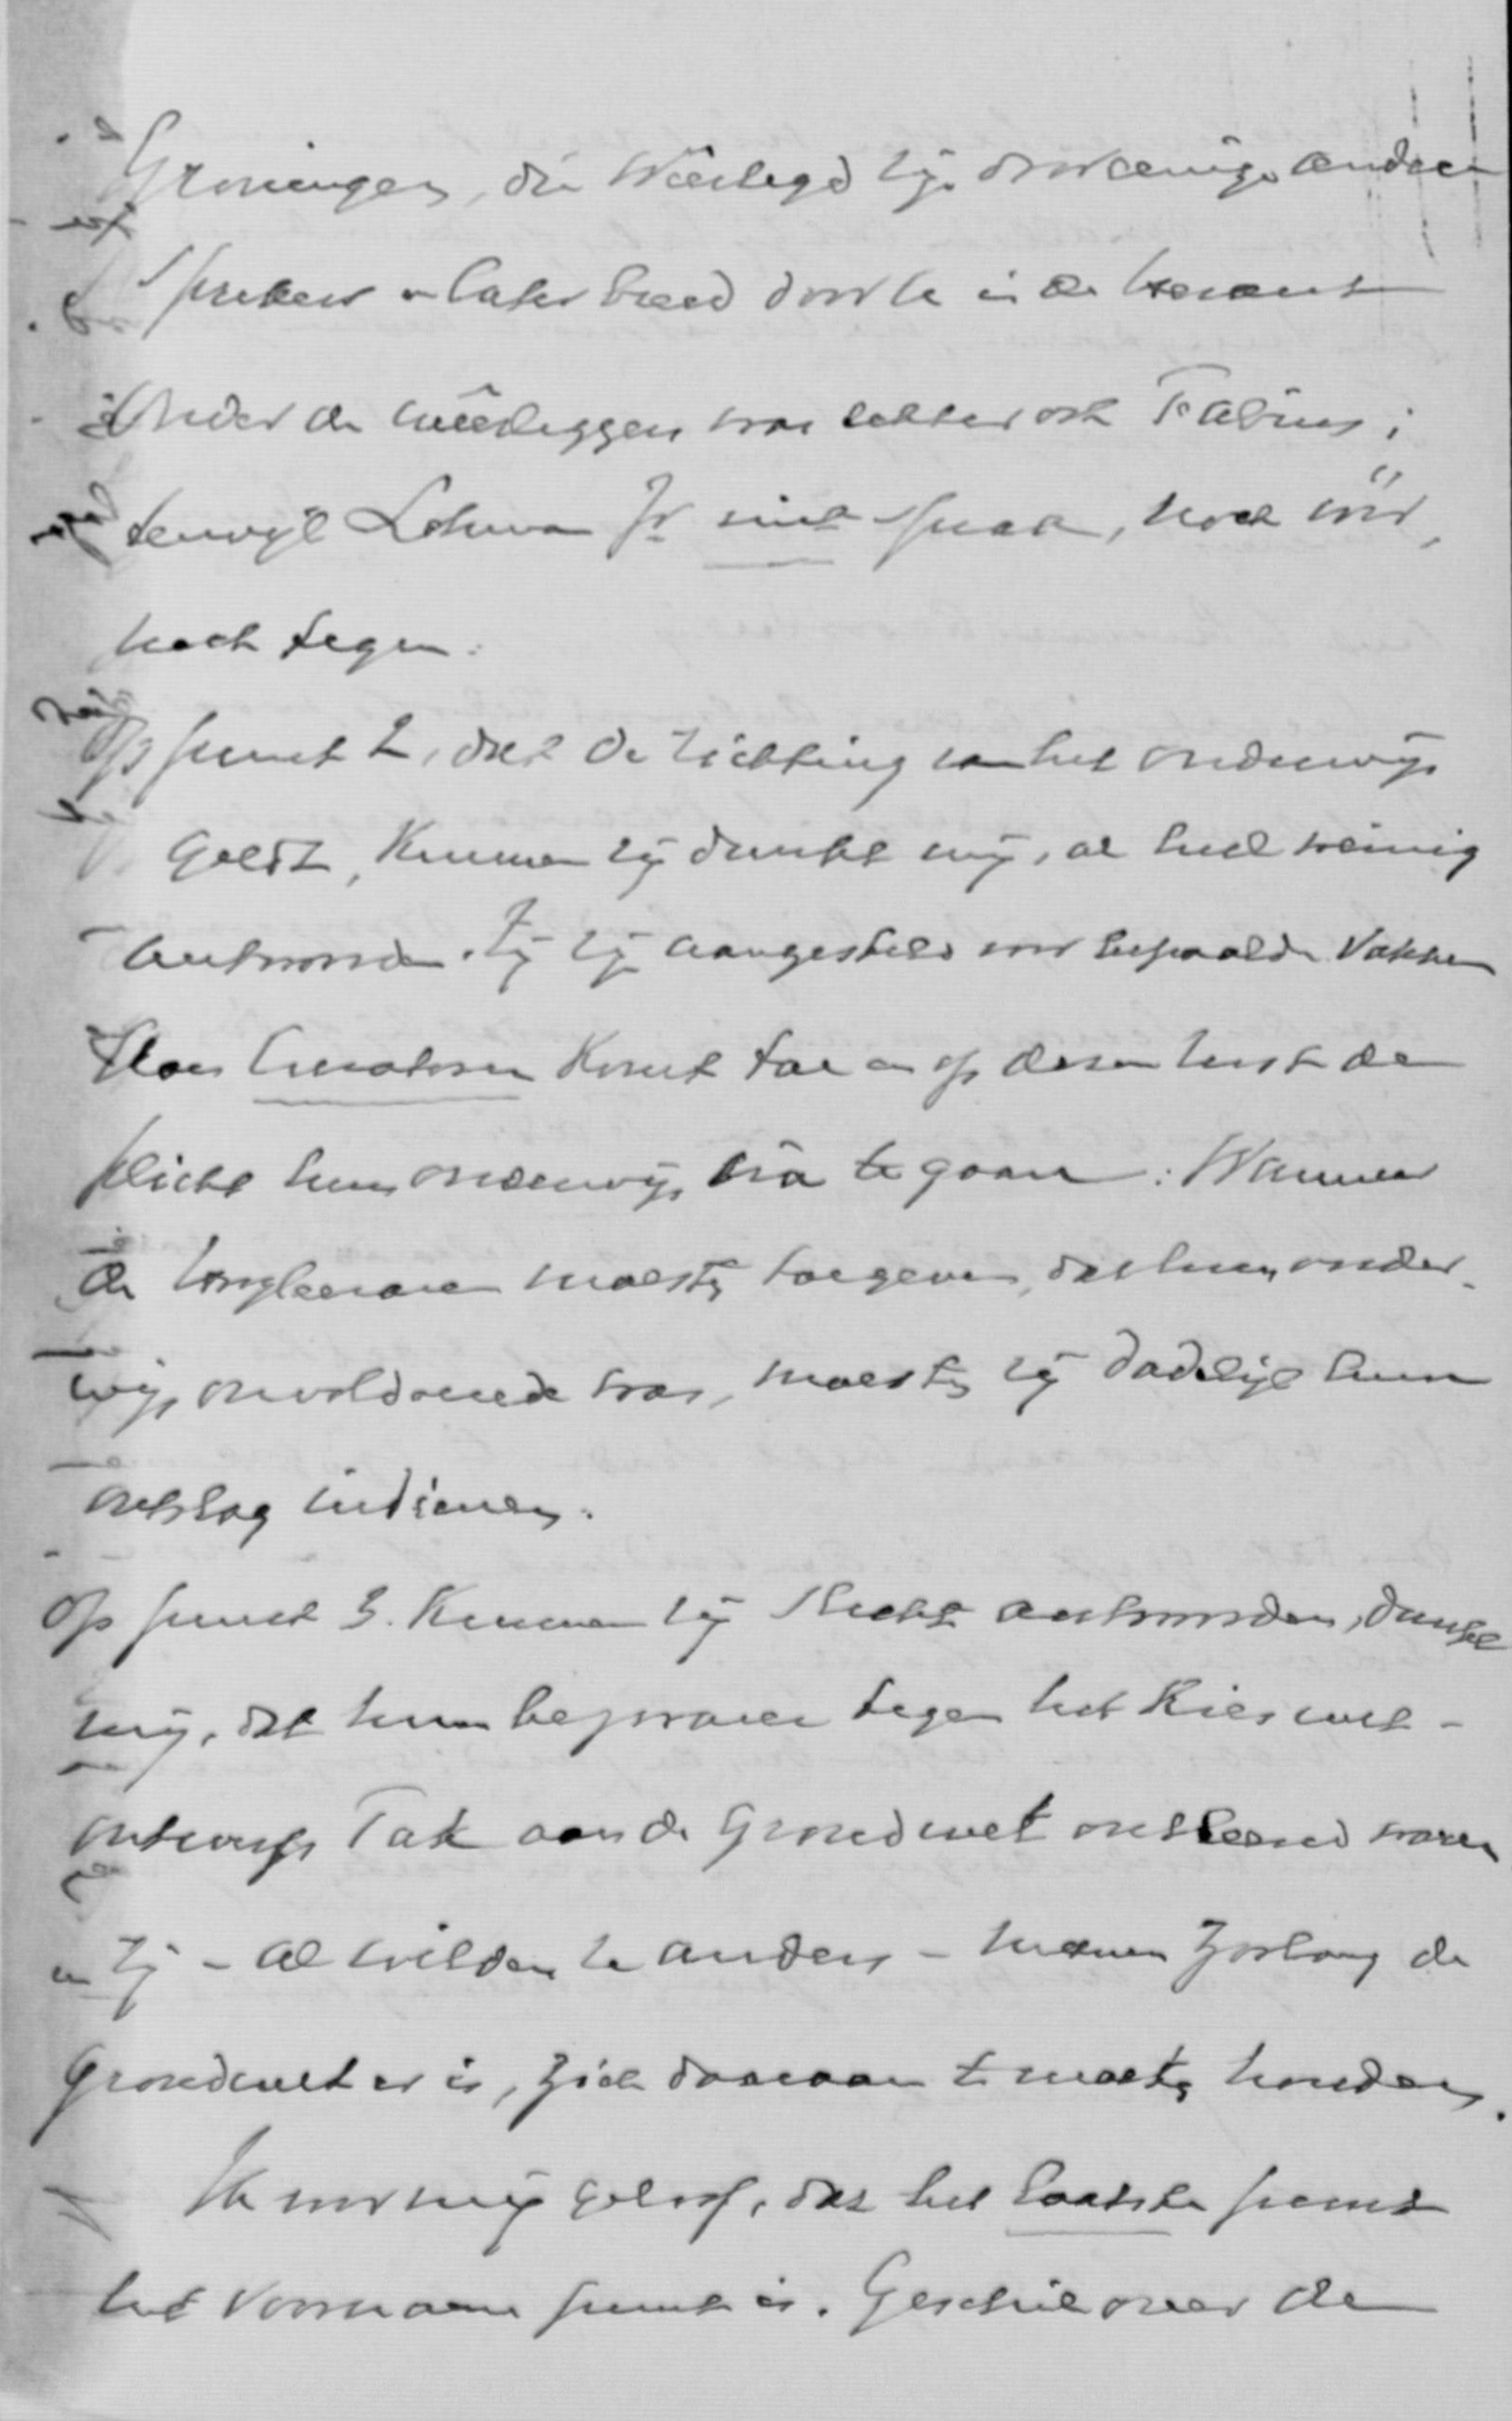 Groningen, die weerlegd zijn door eenige andere
sprekers en later breed door U in de Heraut
Onder de weerleggers was echter ook Fabius;
terwijl Lohman Jr niet sprak, noch vóór,
noch tegen.
Op punt 2, dat de richting van het onderwijs
geldt, kunnen zij dunkt mij, al heel weinig
antwoorden. Zij zijn aangesteld voor bepaalde vakken
Aan Curatoren komt toe en op dezen rust de
plicht hun onderwijs na te gaan. Wanneer
de hoogleeraren moesten toegeven, dat hun onder-
wijs onvoldoende was, moesten zij dadelijk hun
ontslag indienen.
Op punt 3. kunnen zij slechts antwoorden, dunkt
mij, dat hun bezwaren tegen het Kieswet-
ontwerp Tak aan de Grondwet ontleend waren
en zij - al wilden ze anders - meenen zoolang de
Grondwet er is, zich daaraan te moeten houden.
Ik voor mij geloof, dat het laatste punt
het voorname punt is. Geschil over de